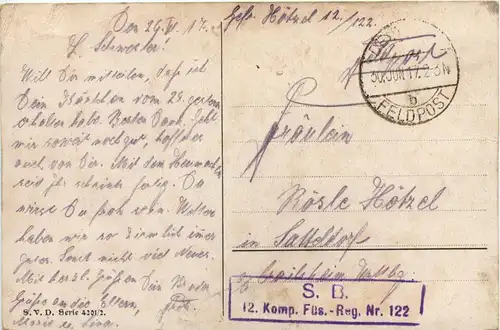 Den 29.VI.17.
L. Schwester!
Will Dir mitteilen, daß ich
Dein Kärtchen vom 25. gestern
erhalten habe. Besten Dank. Geht
mir soweit noch gut, hoffe es
auch von Dir. Mit dem Heumachen
seid Ihr scheints fertig. Du
wirst Du froh sein. Wetter
haben wir so ziemlich immer
gutes. Sonst nicht viel Neues.
Mit herzl. Grüßen Dein Bruder
Grüße an die Eltern,
Marie u. Lina.
S. V. D. Serie 4201/2.
Gefr. Hötzel 12./122.
Feldpost
30.JUN.17.2-3N
b
FELDPOST
Fräulein
Rösle Hötzel
in Satteldorf
Crailsheim Wttbg.
S. B.
12. Komp. Füs.-Reg. Nr. 122